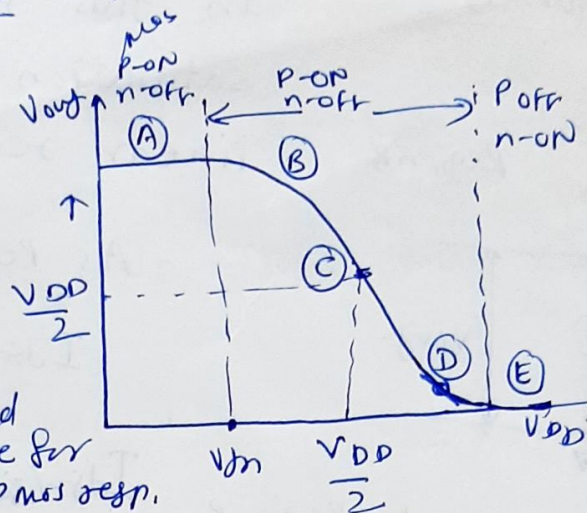 mos
P-ON
n-off
P-ON
n-off
P off
n-ON
Vout
↑
A
B
C
D
E
VDD
2
VDD
Vtn
VDD
2
e for
mos resp.